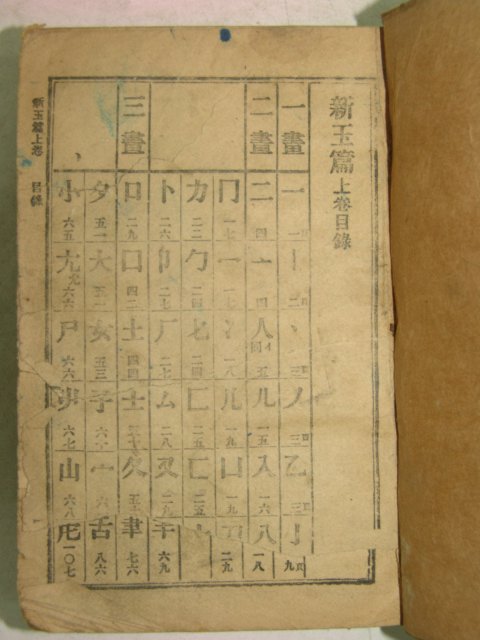 新玉篇上卷目錄
一畫
一 一
丨 二
丶 三
丿 三
乙 三
亅
二畫
二 四
亠 四
人 亻同 五
儿 一五
入 一六
八 一八
冂 一七
冖 一七
冫 一八
几 一九
凵 一九
力 二二
勹 二四
匕 二四
匚 二五
匸 二五
卜 二六
卩 二七
厂 二七
厶 二八
又 二九
三畫
口 二九
囗 四二
土 四四
士
夂
聿 七六
夕 五一
大 五一
女 五三
子 六十
宀 六
舌 八六
小 六五
尢 尣 六六
尸 六六
屮 六七
山 六八
虍 一〇七
新玉篇上卷 目錄